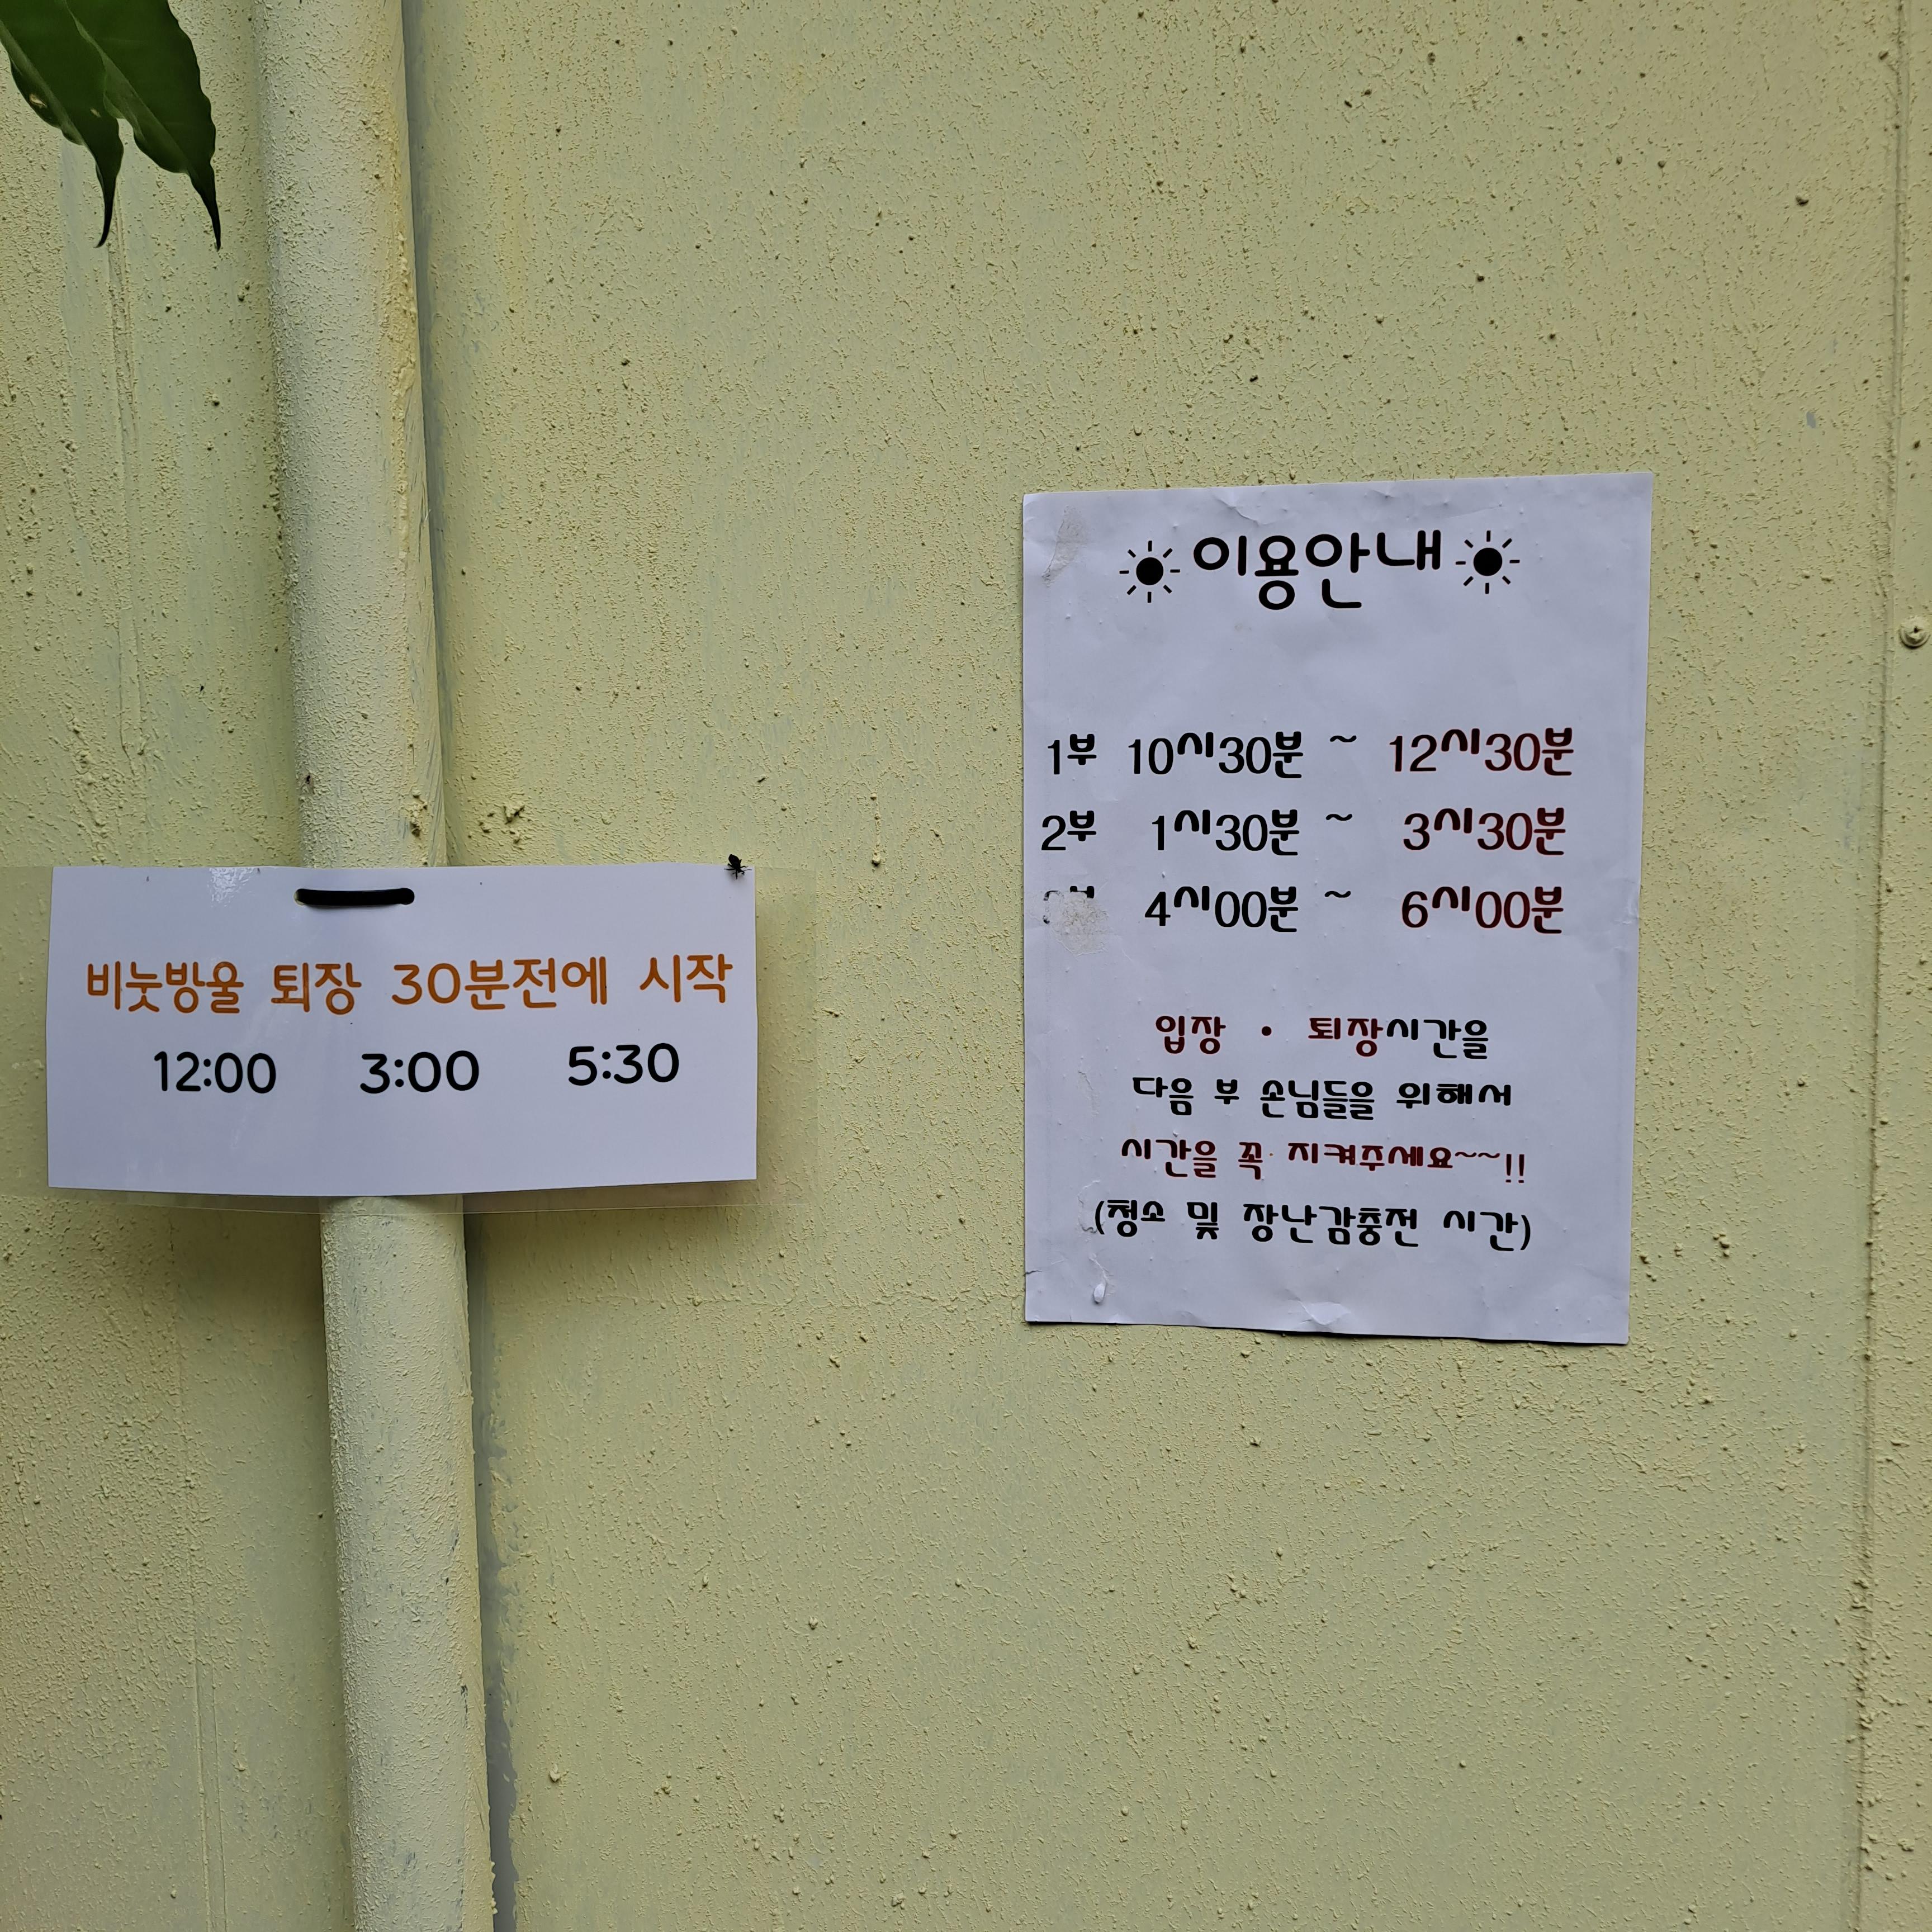 비눗방울 퇴장 30분전에 시작
12:00 3:00 5:30
이용안내
1부 10시30분 ~ 12시30분
2부 1시30분 ~ 3시30분
4시00분 ~ 6시00분
입장 • 퇴장시간을
다음 부 손님들을 위해서
시간을 꼭 지켜주세요~~!!
(청소 및 장난감충전 시간)